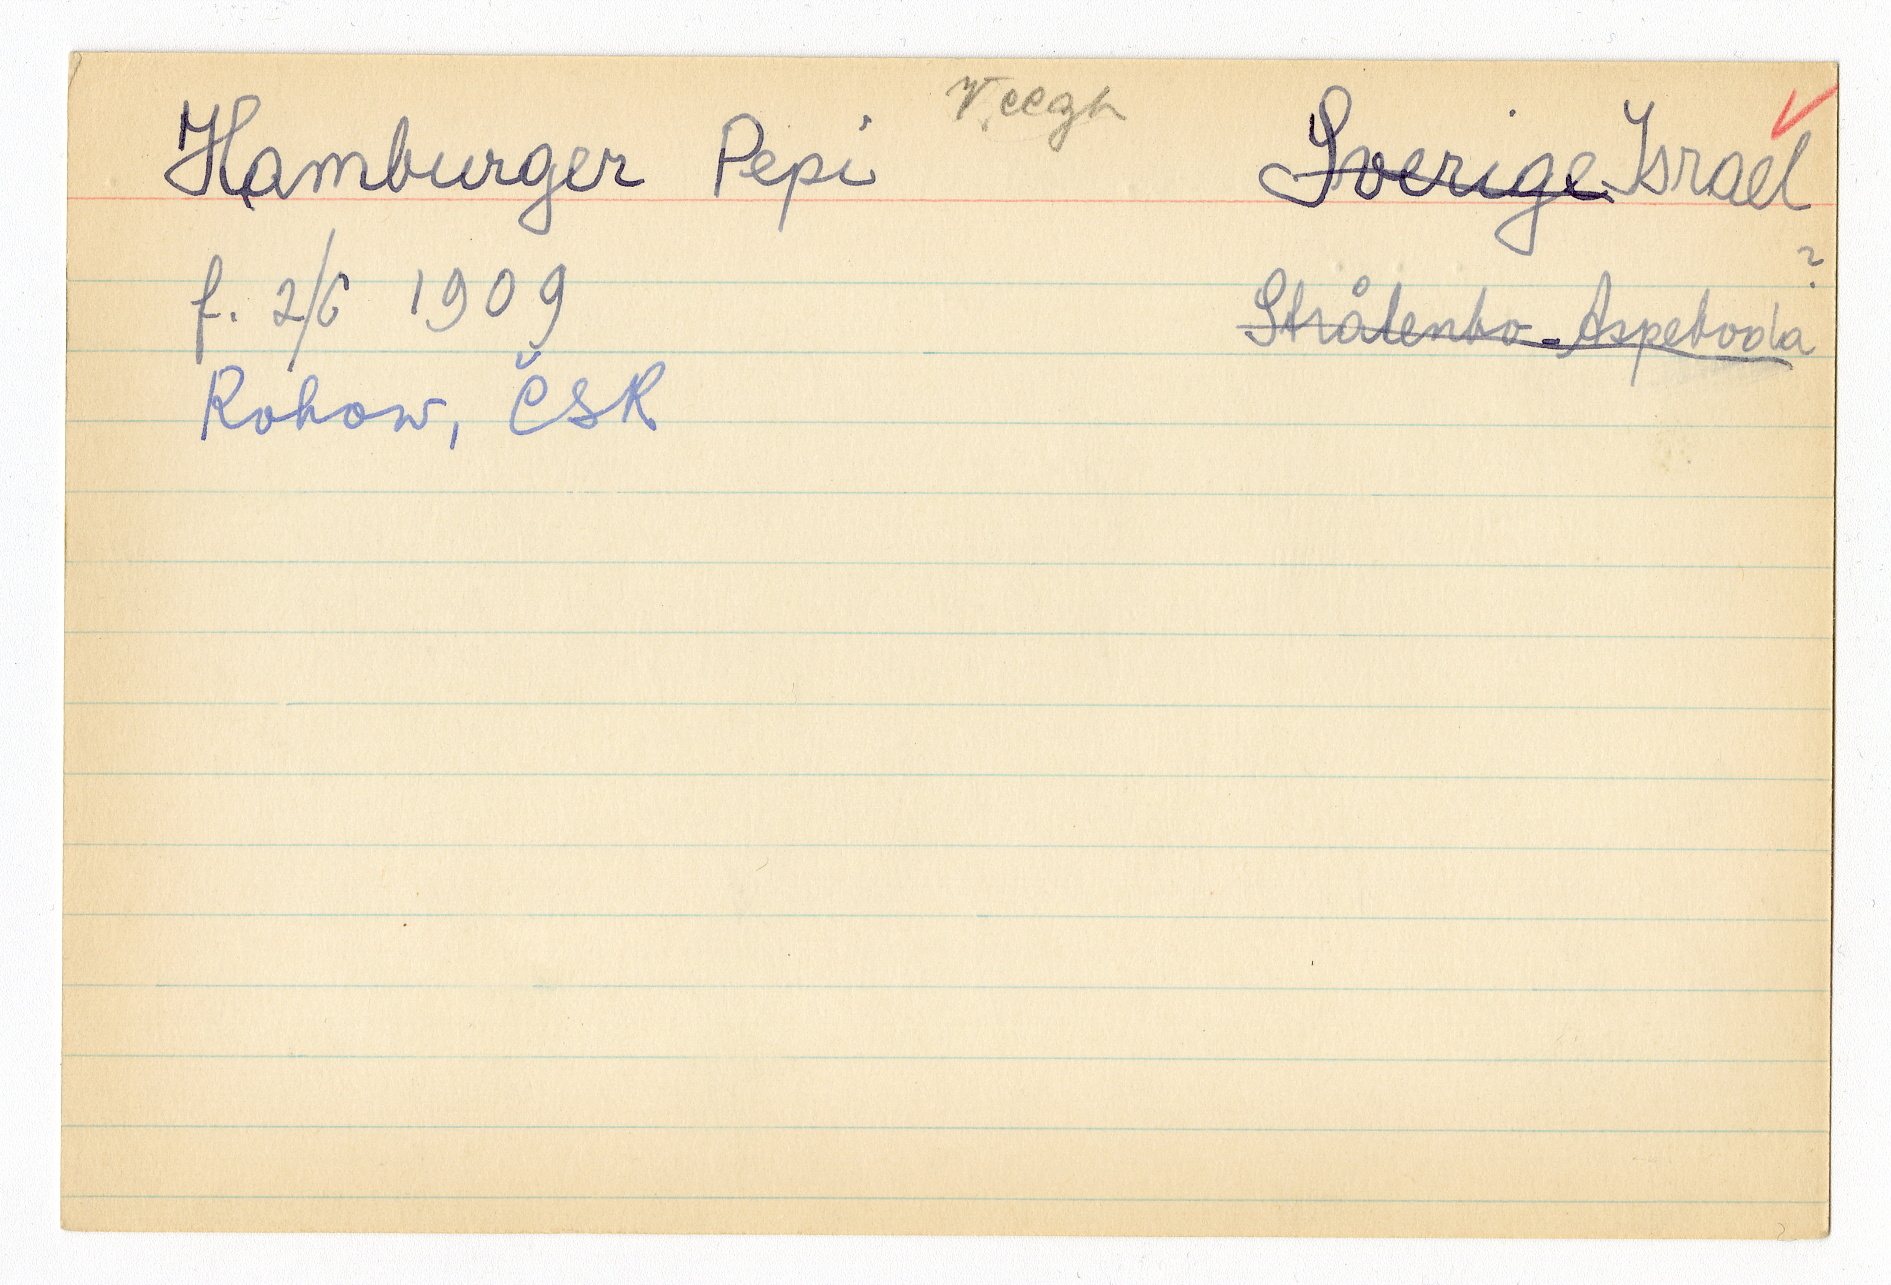 Hamburger Pepi Sverige Israel
?
f. 2/6 1909 Strålenbo - Aspeboda
Rohow, ČSR